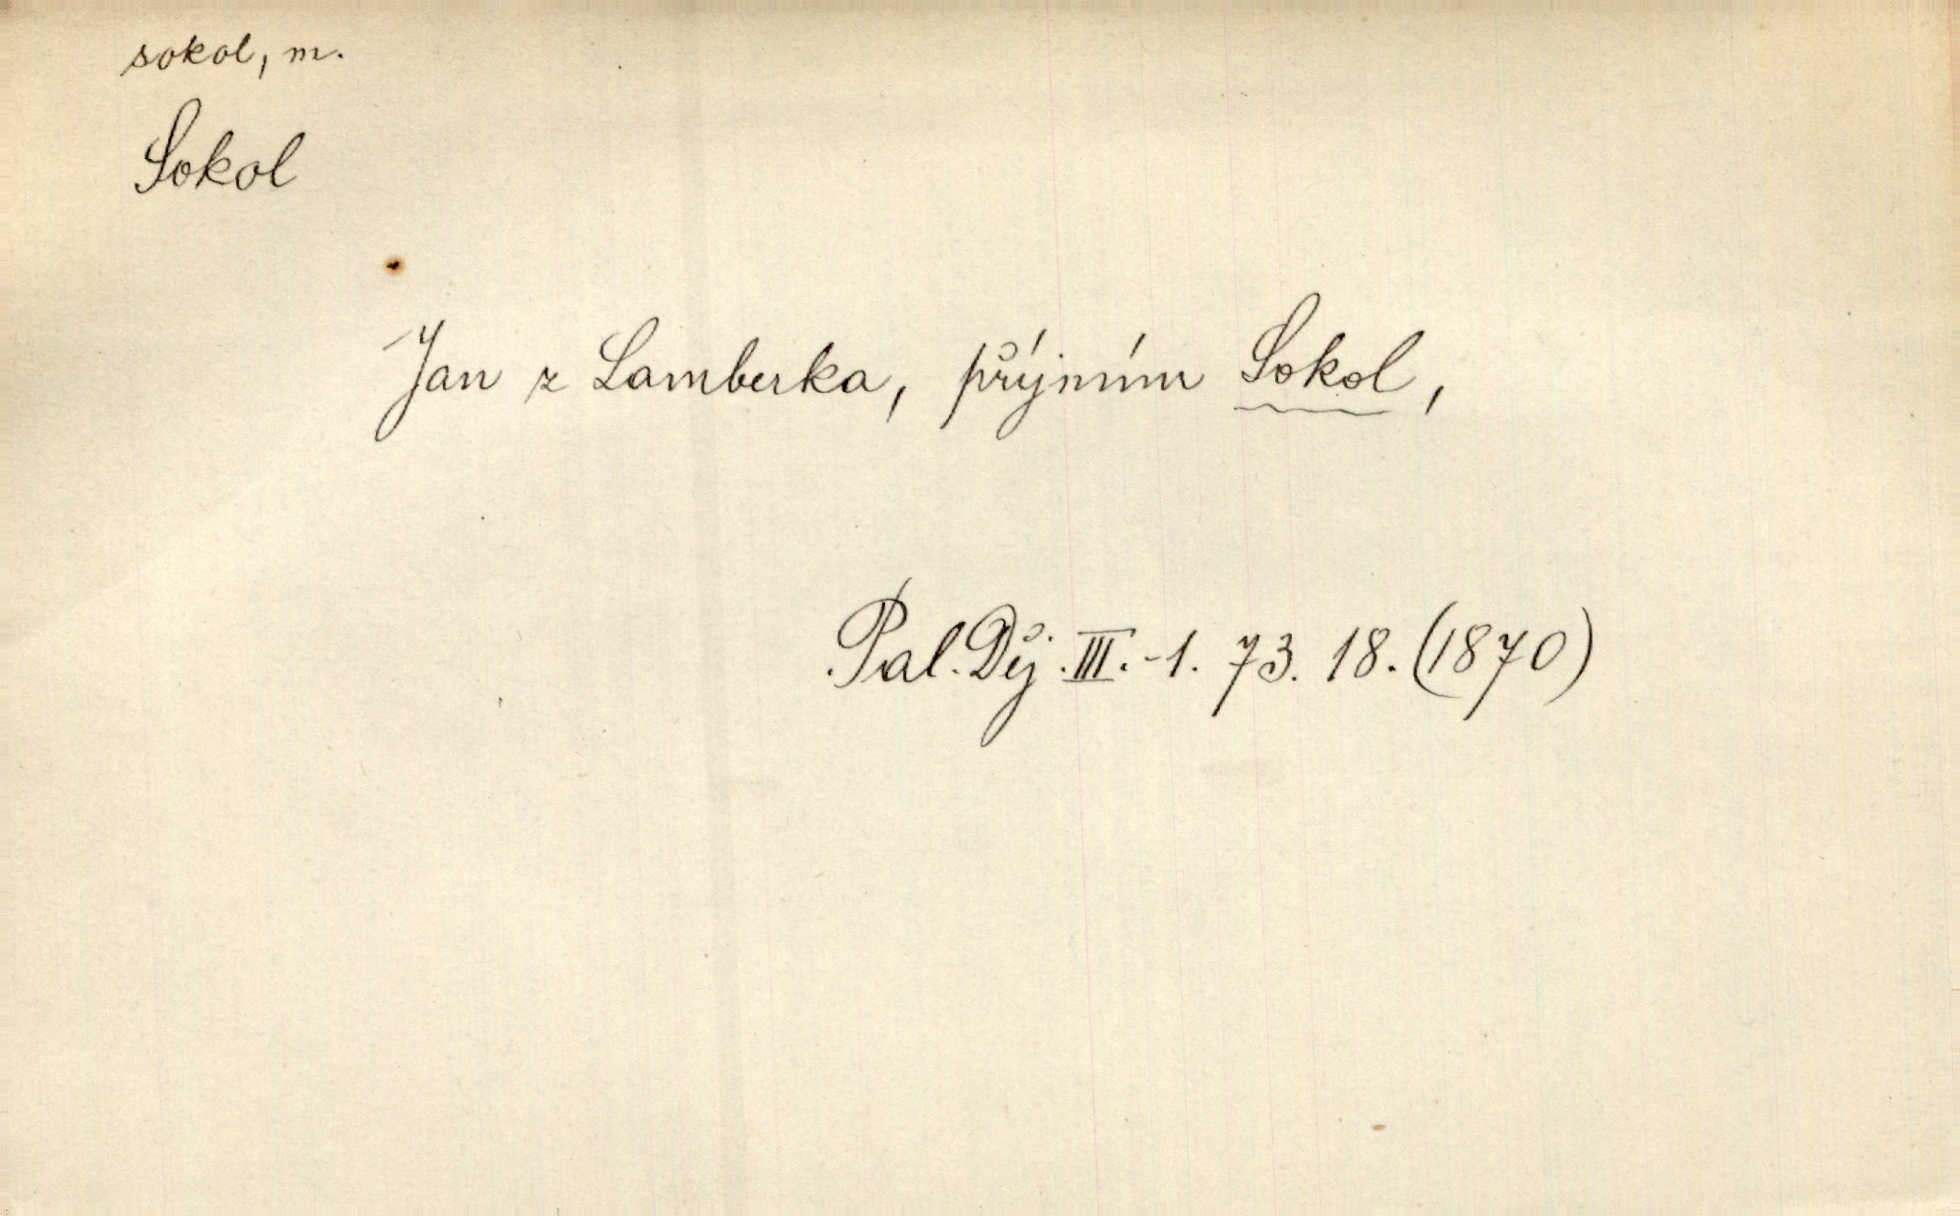 sokol, m.
Sokol
Jan z Lamberka, příjmím Sokol,
Pal. Děj. III.-1. 73. 18. (1870)